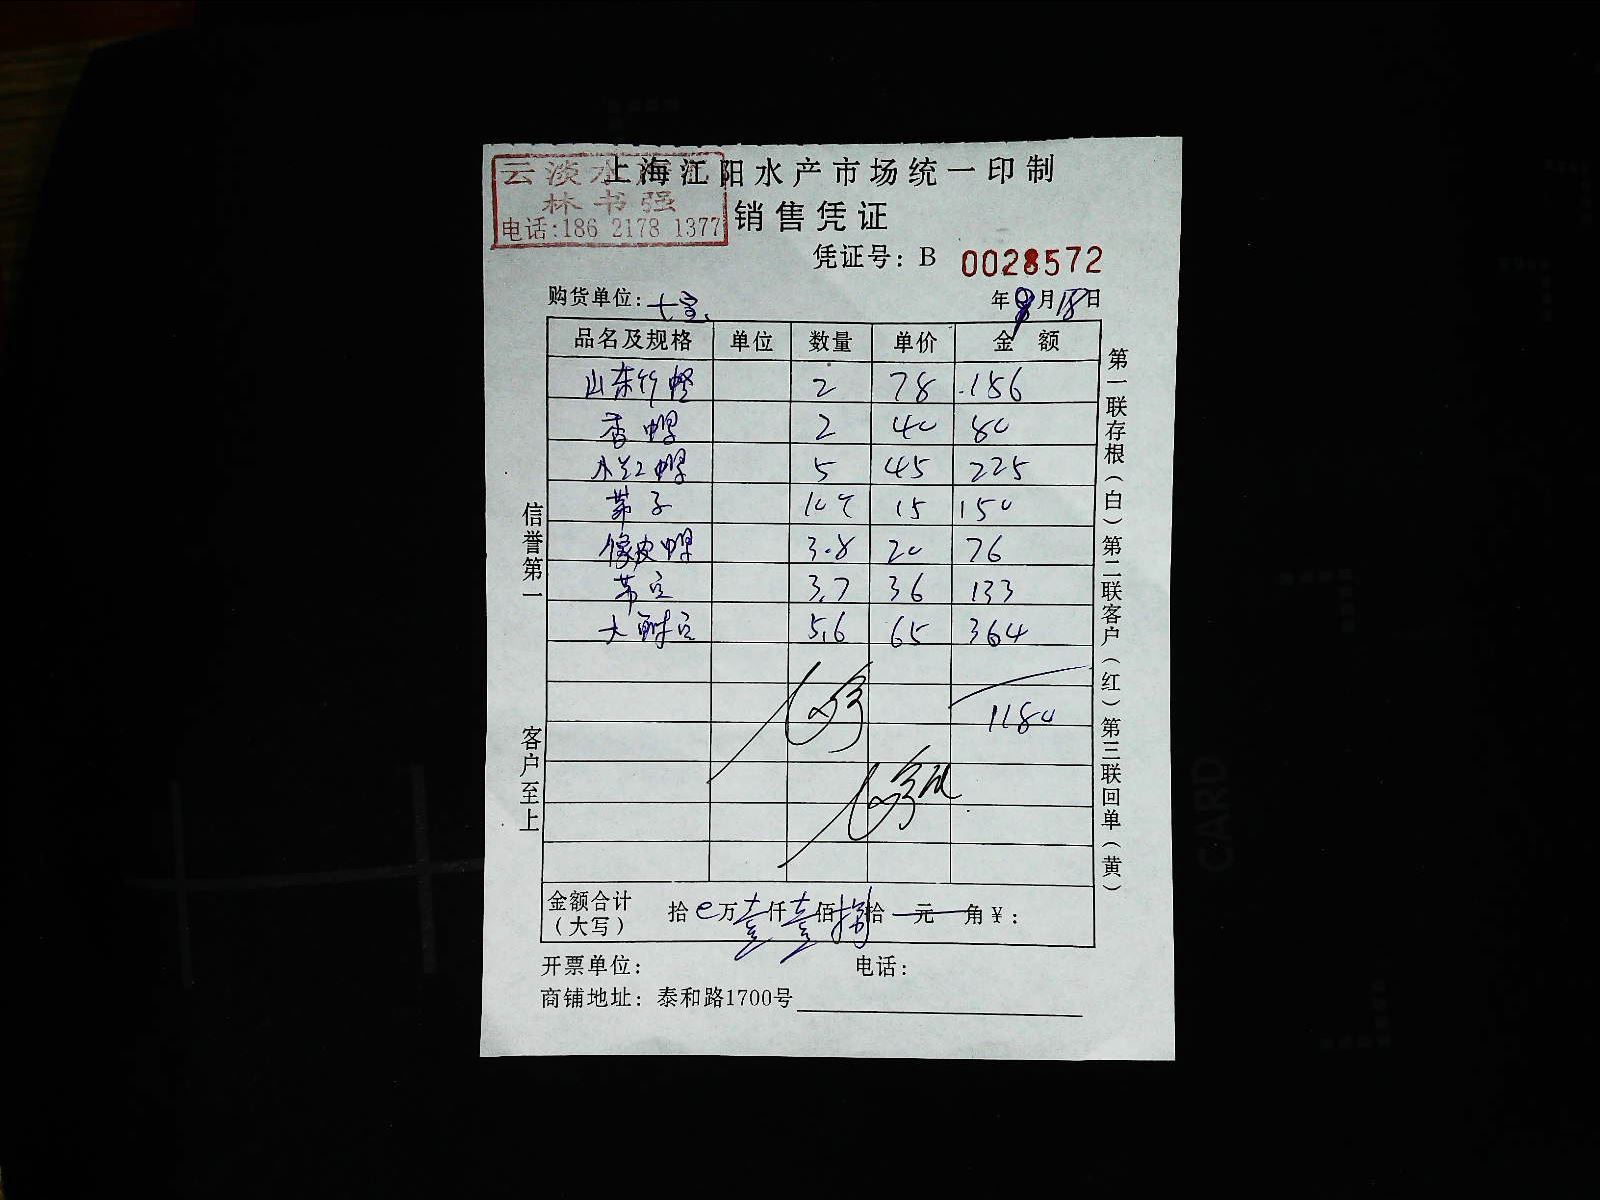 上海江阳水产市场统一印制
云淡水
林书强
电话:186 2178 1377
销售凭证
凭证号: B 0028572
购货单位: 七宝
年 8月18日
品名及规格 单位 数量 单价 金额
山东竹蛏 2 78 156
香螺 2 40 80
水红螺 5 45 225
10 15 150
象皮螺 3.8 20 76
3.7 36 133
大 5.6 65 364
1180
金额合计(大写) 拾 万壹仟壹佰捌拾 元 角 ¥:
开票单位: 电话:
商铺地址: 泰和路1700号
信誉第一 客户至上
第一联存根(白)第二联客户(红)第三联回单(黄)
CARD